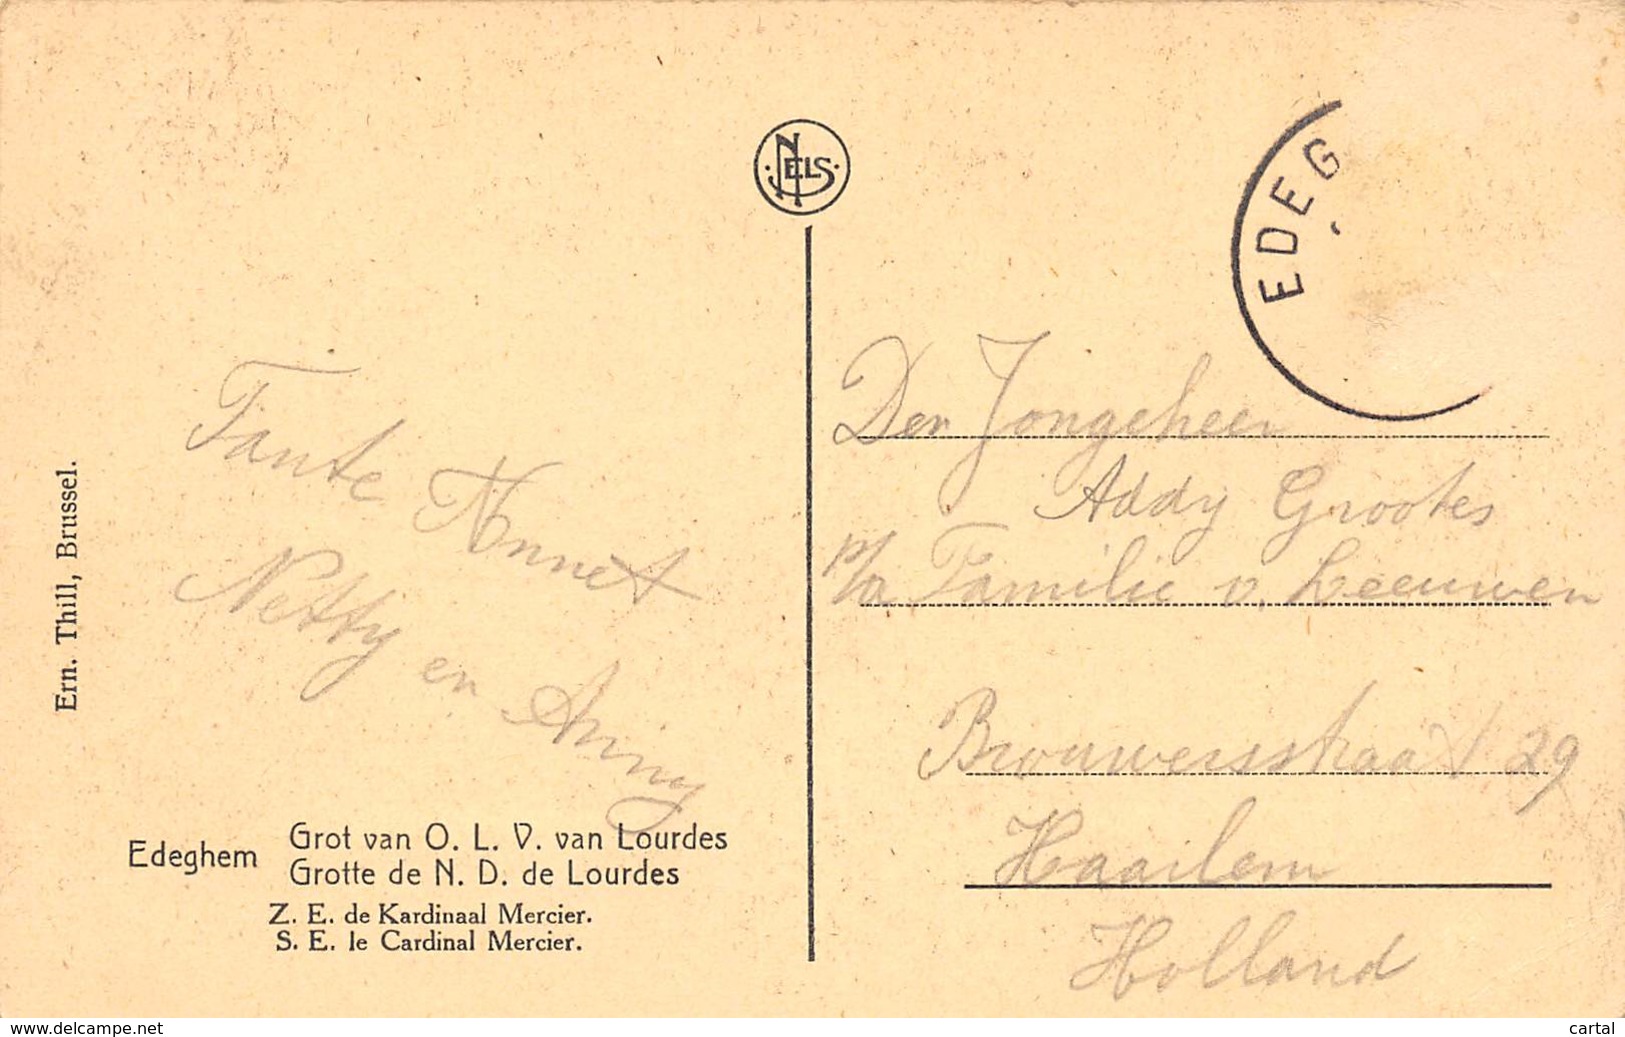 NELS
EDEG
Tante Annet
Netty en Anny
Den Jongeheer
Addy Grootes
p/a Familie v. Leeuwen
Brouwersstraat 29
Haarlem
Holland
Ern. Thill, Brussel.
Edeghem
Grot van O. L. V. van Lourdes
Grotte de N. D. de Lourdes
Z. E. de Kardinaal Mercier.
S. E. le Cardinal Mercier.
www.delcampe.net
cartal